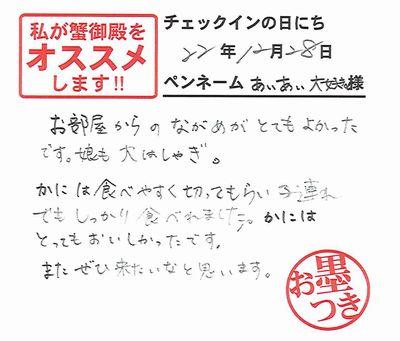 私が蟹御殿を
オススメ
します!!
チェックインの日にち
22年12月28日
ペンネーム あぃあぃ大好き様
お部屋からのながめがとてもよかった
です。娘も大はしゃぎ。
かには食べやすく切ってもらい子連れ
でもしっかり食べれました。かには
とってもおいしかったです。
またぜひ来たいなと思います。
お墨つき